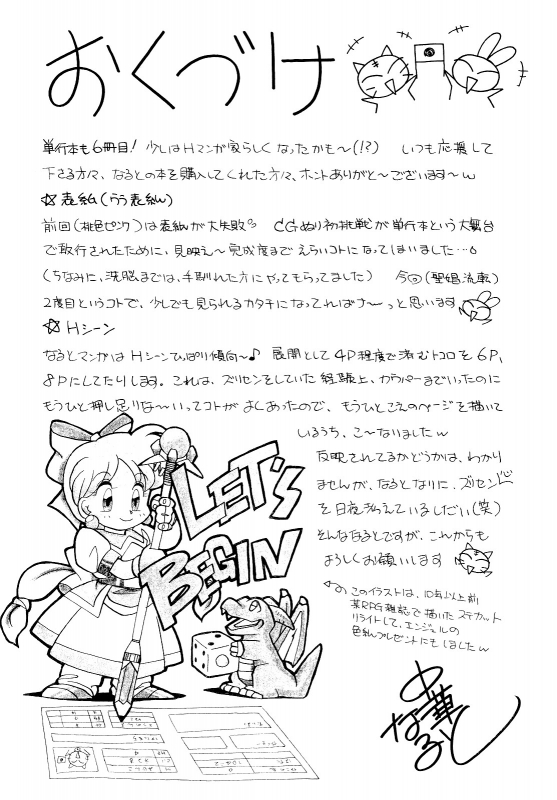 おくづけ
単行本も6冊目! 少しはHマンガ家らしくなったかも~(!?) いつも応援して
下さる方々、なるとの本を購入してくれた方々、ホントありがと~ございます~w
☆表紙(うう表紙)
前回(桃色ピンク)は表紙が大失敗 CGぬり初挑戦が単行本という大舞台
で敢行されたために、見映え~完成度までえらいコトになってしまいました…
(ちなみに、洗脳までは、手馴れた方にやってもらってました) 今回(聖娼流転)
2度目というコトで、少しでも見られるカタチになってればナ~っと思います
☆Hシーン
なるとマンガは Hシーンひっぱり傾向~♪ 展開として4P程度で済むトコロを6P、
8Pにしてたりします。これは、ズリセンをしていた経験上、カラパーまでいったのに
もうひと押し足りな~いってコトがよくあったので、もうひとこえのページを描いて
いるうち、こ~なりましたw
反映されてるかどうかは、わかり
ませんが、なるとなりに、ズリセン
を日夜考えていましたい(笑)
そんななるとですが、これからも
よろしくお願いします
LET'S
BEGIN
このイラストは、10年以上前
某RPG雑誌で描いたステカット
リライトして、エンジェルの
色紙プレゼントにもしましたw
中華
なると